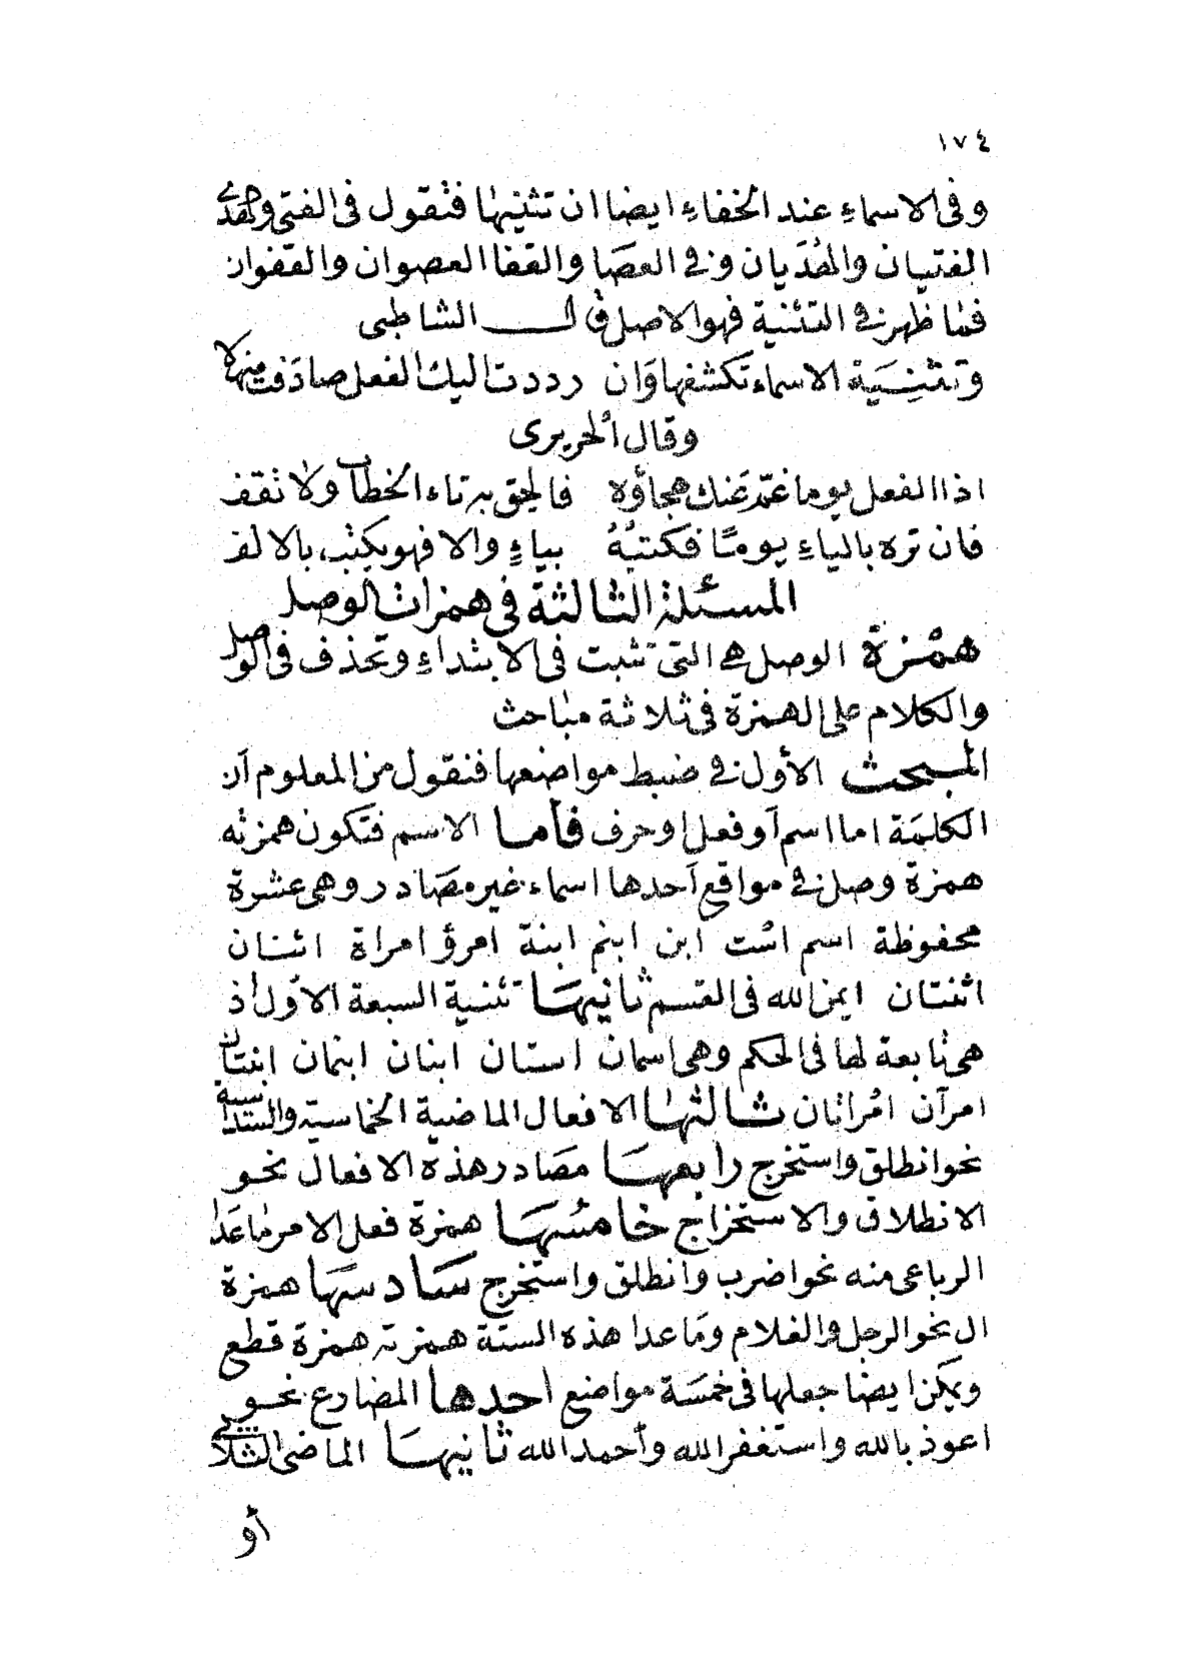 ١٧٤
وفى الاسماءِ عند الخفاءِ ايضا ان تثنيها فتقول فى الفتى وهدى
الفتيان والهُدَيان وفى العصَا والقفا العصوان والقفوان
فما ظهر فى التثنية فهو الاصل قال الشاطبى
وتثنِيَة الاسماء تكشفها وَان رددت اليك الفعل صادَفت منهلا
وقال الحريرى
اذا الفعل يوما غمّ عَنك هجاؤه فالحق به تاء الخطاب ولا تقف
فان تره بالياءِ يومًا فكتبُهُ بياءٍ والا فهو يكتب بالالف
المسئلة الثالثة فى همزات الوصل
همْزة الوصل هى التى تثبت فى الابتداءِ وتحذف فى الوصل
والكلام على الهمزة فى ثلاثة مباحث
المبحث الأول فى ضبط مواضعها فنقول من المعلوم أن
الكلمَة اما اسم أو فعل او حرف فأما الاسم فتكون همزته
همزة وصل فى مواقع أحدها اسماء غير مصَادر وهى عشرة
محفوظة اسم اسْت ابن ابنم ابنة امرؤ امراة اثنان
اثنتان ايمن الله فى القسم ثانيهَا تثنية السبعة الاوّل اذ
هى تابعة لها فى الحكم وهى اسمان استان ابنان ابنمان ابنتان
امرآن امْراتان ثالثها الافعال الماضية الخماسية والسّداسية
نحو انطلق واستخرج رابعهَا مصَادر هذه الافعال نحو
الانطلاق والاستخراج خامسَها همزة فعل الامر ما عَدا
الرباعى منه نحو اضرب وانطلق واستخرج سَادسهَا همزة
ال نحو الرجل والغلام ومَا عدا هذه الستّة همزته همزة قطع
ويمكن ايضا جعلها فى خمسَة مواضع احدها المضارع نحو
اعوذ بالله واستغفر الله وأحمد الله ثانيهَا الماضى الثلاثى
أو